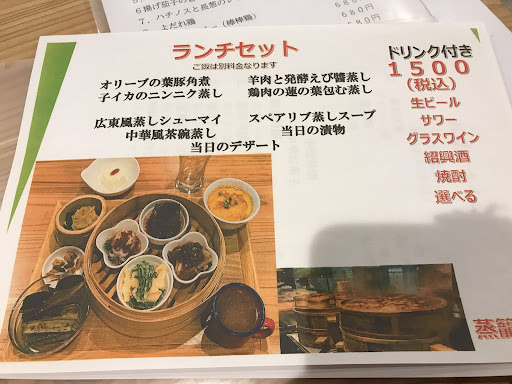 6揚げ茄子の
7．ハチノスと長葱の
680円
よだれ鶏 （棒棒鶏）
680円
ランチセット
ご飯は別料金なります
オリーブの葉豚角煮
羊肉と発酵えび醬蒸し
子イカのニンニク蒸し
鶏肉の蓮の葉包む蒸し
広東風蒸しシューマイ
スペアリブ蒸しスープ
中華風茶碗蒸し
当日の漬物
当日のデザート
ドリンク付き
１５００
（税込）
生ビール
サワー
グラスワイン
紹興酒
焼酎
選べる
蒸籠